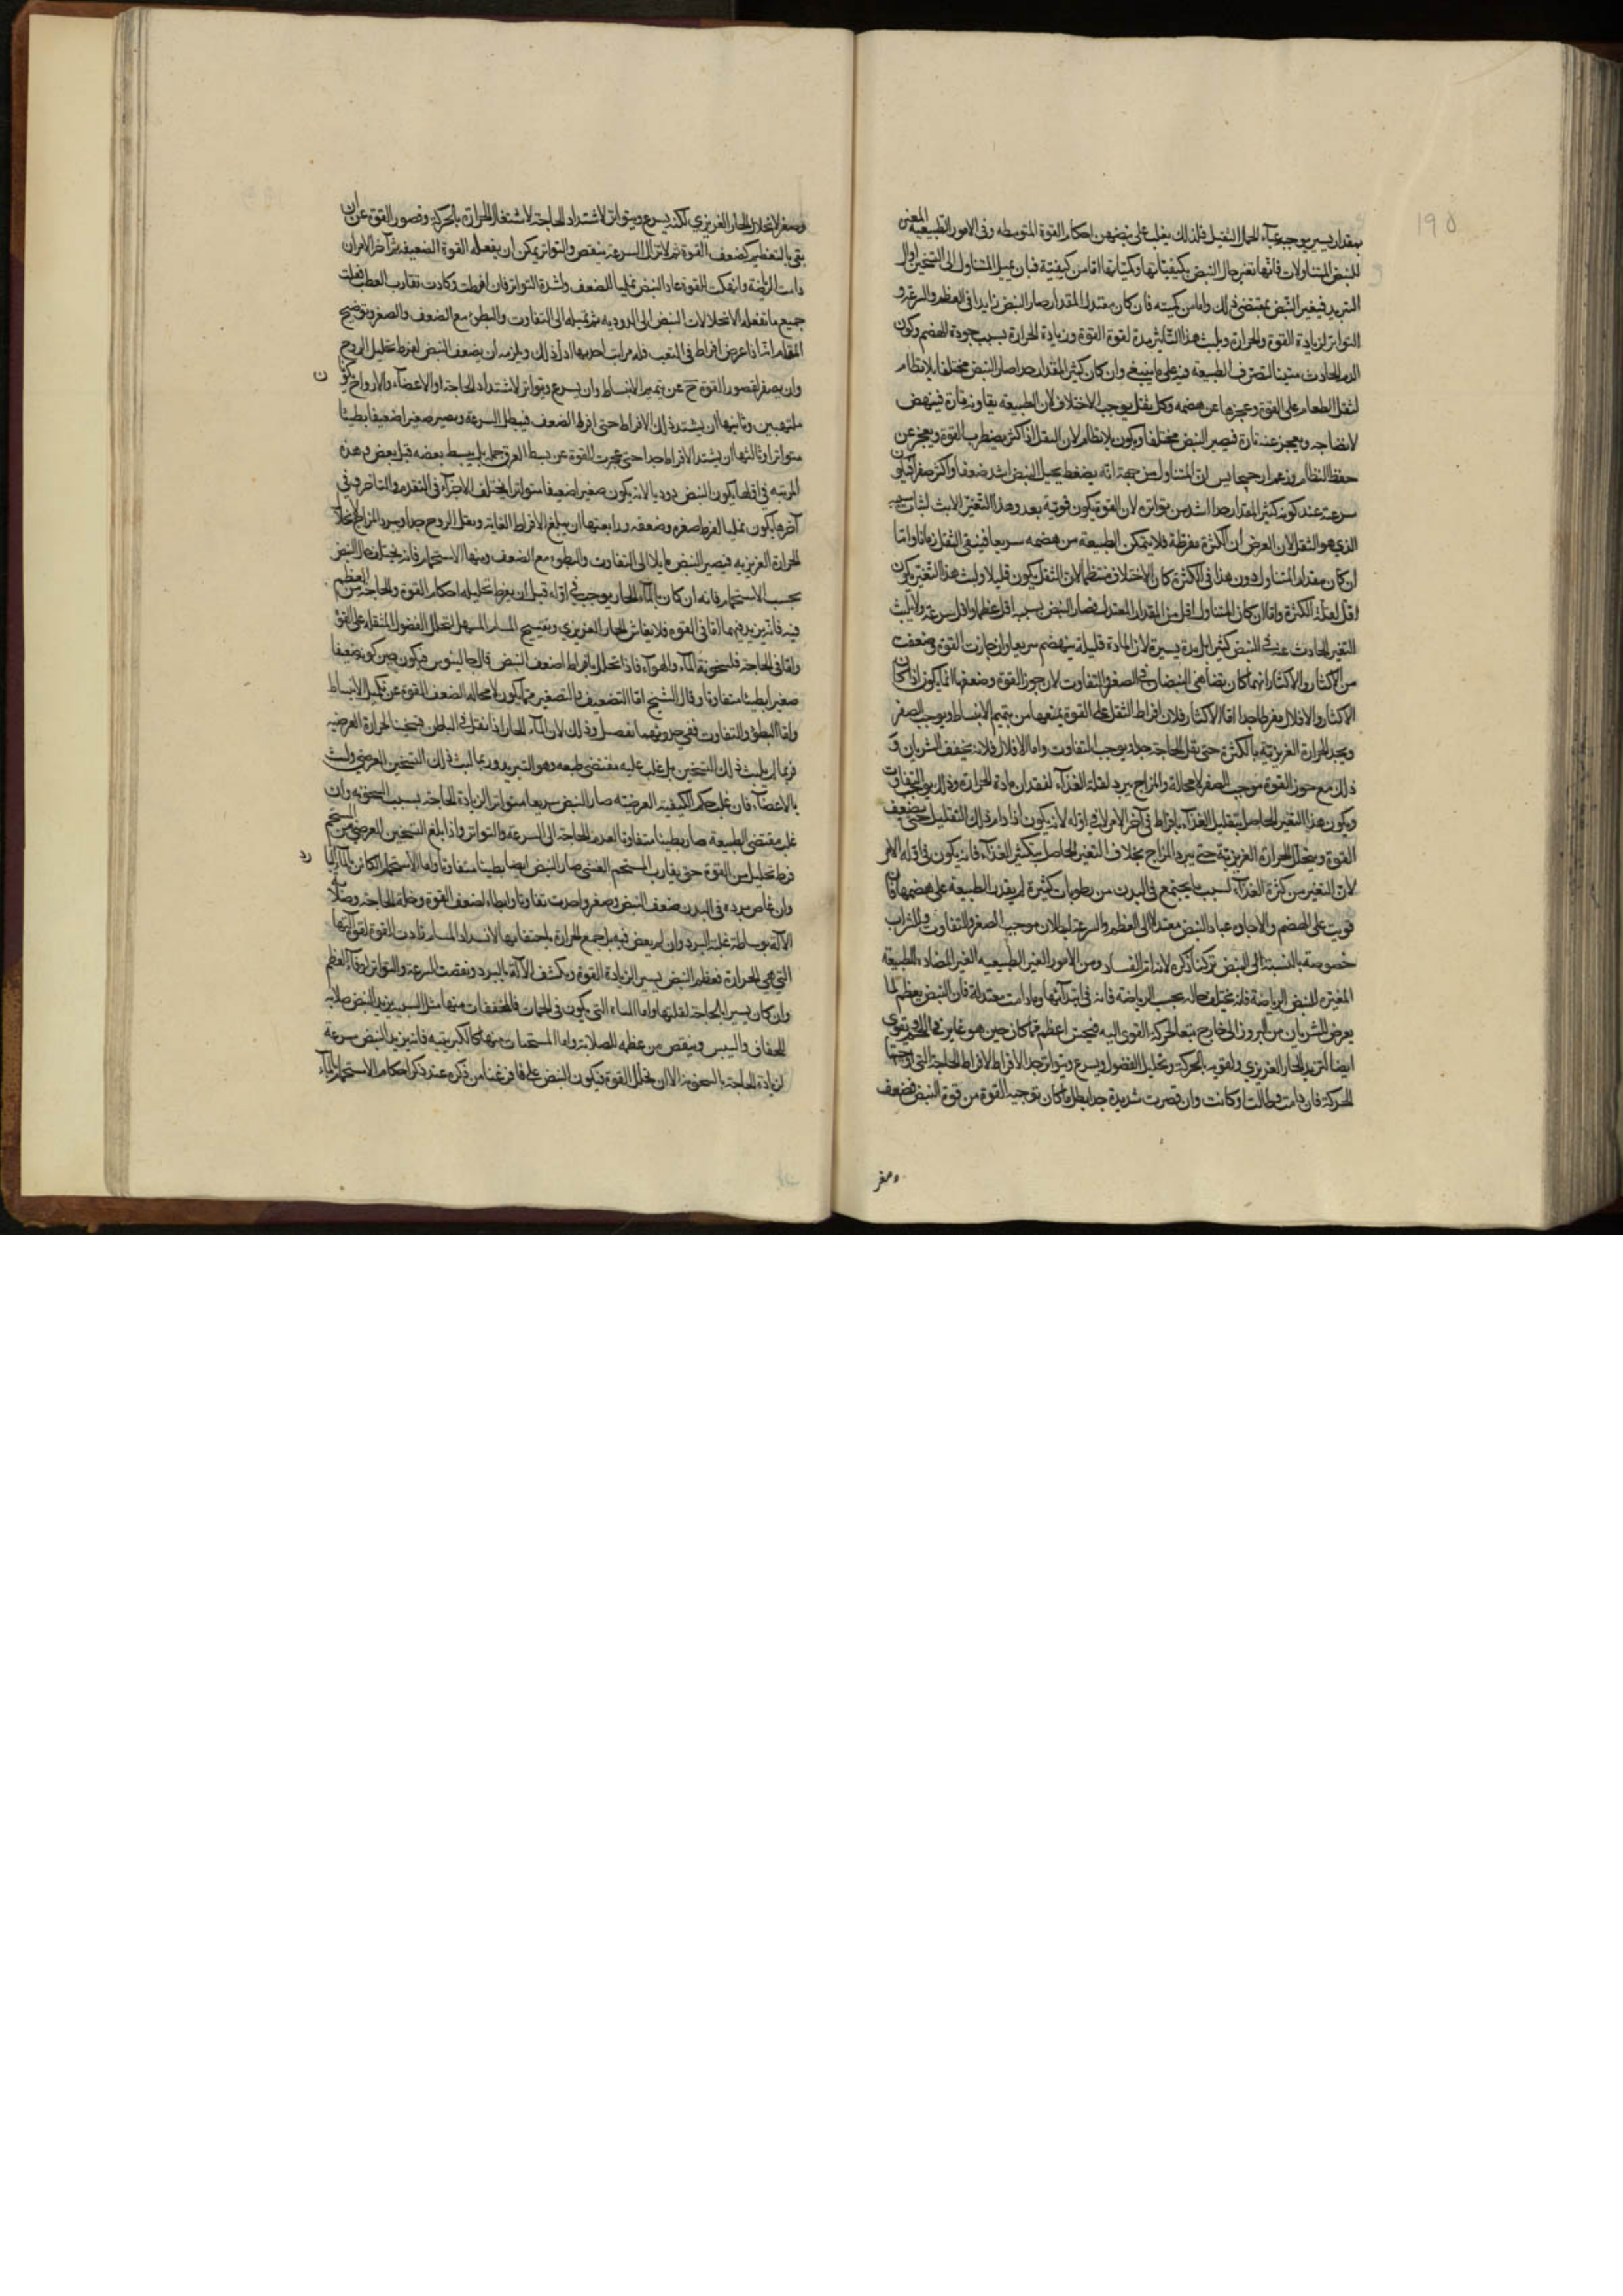 ١٩٥
بمقدار يسير يوجبه عباء الحمل الثقيل فلذلك يغلب على نبضهن احكام القوة المتوسطه وفى الامور الطبيعية المغيرة
للنبض المتناولات فانها تغير حال النبض بكيفياتها وكمياتها اما من كيفيتة فبان يميل المتناول الى التسخين او الى
التبريد فيغير النبض بمقتضى ذلك واما من كميته فان كان معتدل المقدار صار النبض زايدا فى العظم والسرعة و
التواتر لزيادة القوة والحرارة ويلبث هذا التأثير مدة لقوة القوة وزيادة الحرارة بسبب جودة الهضم وكون
الدم الحادث متينا لتصرف الطبيعة فيه على ما ينبغى وان كان كثير المقدار جدا صار النبض مختلفا بلا نظام
لثقل الطعام على القوة وعجزها عن هضمه وكل ثقل يوجب الاختلاف لان الطبيعة يقاومه تارة فينهض
لانضاجه ويعجز عنه تارة فيصير النبض مختلفا ويكون بلا نظام لان الثقل اذا كثر يضطرب القوة ويعجز عن
حفظ النظام وزعم ارجيجانس ان المتناول من جهة انه يضغط يحيل النبض اشد ضعفا واكثر صغرا فيكون
سرعته عند كونه كثير المقدار جدا اشد من تواتره لان القوة يكون قوية بعد وهذا التغير لابث لثبات سببه
الذى هو الثقل لان الغرض ان الكثرة مفرطة فلا يتمكن الطبيعة من هضمه سريعا فيبقى الثقل زمانا واما
ان كان مقدار المتناول دون هذا فى الكثرة كان الاختلاف منتظما لان الثقل يكون قليلا ولبث هذا التغير يكون
اقل لقلة الكثرة واما ان كان المتناول اقل من المقدار المعتدل فصار النبض بسببه اقل عظما واقل سرعة ولا يلبث
التغير الحادث عنه فى النبض كثيرا بل مدة يسيرة لان المادة قليلة ينهضم سريعا وان خارت القوة وضعفت
من الاكثار والاقلال ايهما كان يضاهى النبضان فى الصغر والتفاوت لان خور القوة وضعفها انما يكون اذا كان
الاكثار والاقلال مفرطا جدا اما الاكثار فلان افراط الثقل على القوة يمنعها من تتميم الانبساط ويوجب الصغر
ويخمد الحرارة الغريزية بالكثرة حتى يقل الحاجة جدا ويوجب التفاوت واما الاقلال فلانه يجفف الشريان و
ذلك مع خور القوة موجب الصغر لا محالة والمزاج يبرد لقلة الغذاء لفقدان مادة الحرارة وذلك يوجب التفاوت
ويكون هذا التغير الحاصل بتقليل الغذاء بافراط فى آخر الامر لا فى اوله لانه يكون اذا دام ذلك التقليل حتى يضعف
القوة ويتحلل الحرارة الغريزية حتى يبرد المزاج بخلاف التغير الحاصل بتكثير الغذاء فانه يكون فى اول الامر
لان التغير من كثرة الغذاء لسبب ما يجتمع فى البدن من رطوبات كثيرة لم يقدر الطبيعة على هضمها فان
قويت على الهضم والاحالة عاد النبض معتدلا الى العظم والسرعة لبطلان موجب الصغر والتفاوت والشراب
خصوصته بالنسبة الى النبض تركنا ذكره لانه اثر الفساد ومن الامور الغير الطبيعية الغير المضادة للطبيعة
المغيرة للنبض الرياضة فانه يختلف حاله بحسب الرياضة فانه فى ابتدائها وما دامت معتدلة فان النبض يعظم لما
يعرض للشريان من البروز الى خارج تبعا لحركة القوى اليه فيحس اعظم مما كان حين هو غاير فى اللحم ويقوى
ايضا لتزيد الحار الغريزى وتقويه بالحركة وتحليل الفضول ويسرع ويتواتر جدا لافراط الحاجة التى اوجبتها
الحركة فان دامت وطالت او كانت وان قصرت شديدة جدا بطل ما كان توجبه القوة من قوة النبض فضعف
وصغر
وصغر لانحلال الحار الغريزى لكنه يسرع ويتواتر لاشتداد الحاجة لاشتعال الحرارة بالحركة وقصور القوة عن ان
يفى بالتعظيم لضعف القوة ثم لا تزال السرعة ينقص والتواتر يمكن ان يفعله القوة الضعيفة ثم آخر الامر ان
دامت الرياضة وانهكت القوة عاد النبض نمليا للضعف ولشدة التواتر فان افرطت وكادت تقارب العطب فعلت
جميع ما تفعله الانحلالات النبض الى الدودية ثم تميله الى التفاوت والبطوء مع الضعف والصغر وتوضيح
المقام انه اذا عرض افراط فى التعب فله مراتب احديها اول ذلك ويلزمه ان يضعف النبض لفرط تحليل الروح
وان يصغر لقصور القوة ح عن تتميم الانبساط وان يسرع ويتواتر لاشتداد الحاجة والاعضاء والارواح يكون
ملتهبين وثانيها ان يشتد ذلك الافراط حتى افرط الضعف فيبطل السرعة ويصير صغيرا ضعيفا بطيئا
متواترا وثالثها ان يشتد الافراط جدا حتى عجزت القوة عن بسط العرق جملة بل يبسط بعضه قبل بعض وهذه
المرتبة فى اولها يكون النبض دوديا لانه يكون صغيرا ضعيفا متواترا مختلف الاجزاء فى التقدم والتاخر وفى
آخرها يكون نمليا لفرط صغره وضعفه ورابعتها ان يبلغ الافراط الغاية ويقل الروح جدا ويبرد المزاج لانحلال
الحرارة الغريزية فيصير النبض مايلا الى التفاوت والبطوء مع الضعف ومنها الاستحمام فانه يختلف حال النبض
بحسب الاستحمام فانه ان كان بالماء الحار يوجب فى اوله قبل ان يفرط تحليله احكام القوة والحاجة من العظم
فيه فانه يزيد فيهما اما فى القوة فلانعاش الحار الغريزى وتفتيح المسام المسهل لتحلل الفضول المثقلة على القوة
واما فى الحاجة فلسخونة الماء والهواء فاذا تحلل بافراط اضعف النبض قال جالينوس فيكون حين كونه ضعيفا
صغيرا بطيئا متفاوتا وقال الشيخ اما التضعيف والتصغير فما يكون لا محالة لضعف القوة عن تكميل الانبساط
واما البطؤ والتفاوت ففى حدوثهما تفصيل وذلك لان الماء الحار اذا نفذ فى الباطن فتسخنه الحرارة العرضية
فربما لم يلبث ذلك التسخين بل غلب عليه مقتضى طبعه وهو التبريد وربما لبث ذلك التسخين العرضى ولبث
بالاعضاء فان غلب حكم الكيفية العرضية صار النبض سريعا متواترا لزيادة الحاجة بسبب السخونة وان
غلب مقتضى الطبيعة صار بطيئا متفاوتا لعدم الحاجة الى السرعة والتواتر واذا بلغ التسخين العرضى من المستحم
فرط تحليل من القوة حتى يقارب المستحم الغشى صار النبض ايضا بطيئا متفاوتا واما الاستحمام الكائن بالماء البارد
وان غاص برده فى البدن ضعف النبض وصغر واحدث تفاوتا وابطاء لضعف القوة وقلة الحاجة وصلابة
الآلة بوساطة غلبة البرد وان لم يغص فيه بل جمع الحرارة باحتقانها لانسداد المسام زادت القوة لقوة آلتها
التى هى الحرارة فعظم النبض يسيرا لزيادة القوة وتكثف الآلة بالبرد ونقصت السرعة والتواتر لوفاء العظم
وان كان يسيرا بالحاجة لقلتها واما المياه التى يكون فى الحمات فالمجففات منها مثل الشبية يزيد النبض صلابة
للجفاف واليبس وينقص من عظمه للصلابة واما المسخنات منها كالكبريتية فانه يزيد النبض سرعة
لزيادة الحاجة بالسخونة الا ان يحلل القوة فيكون النبض على ما فرغنا من ذكره عند ذكر احكام الاستحمام بالماء